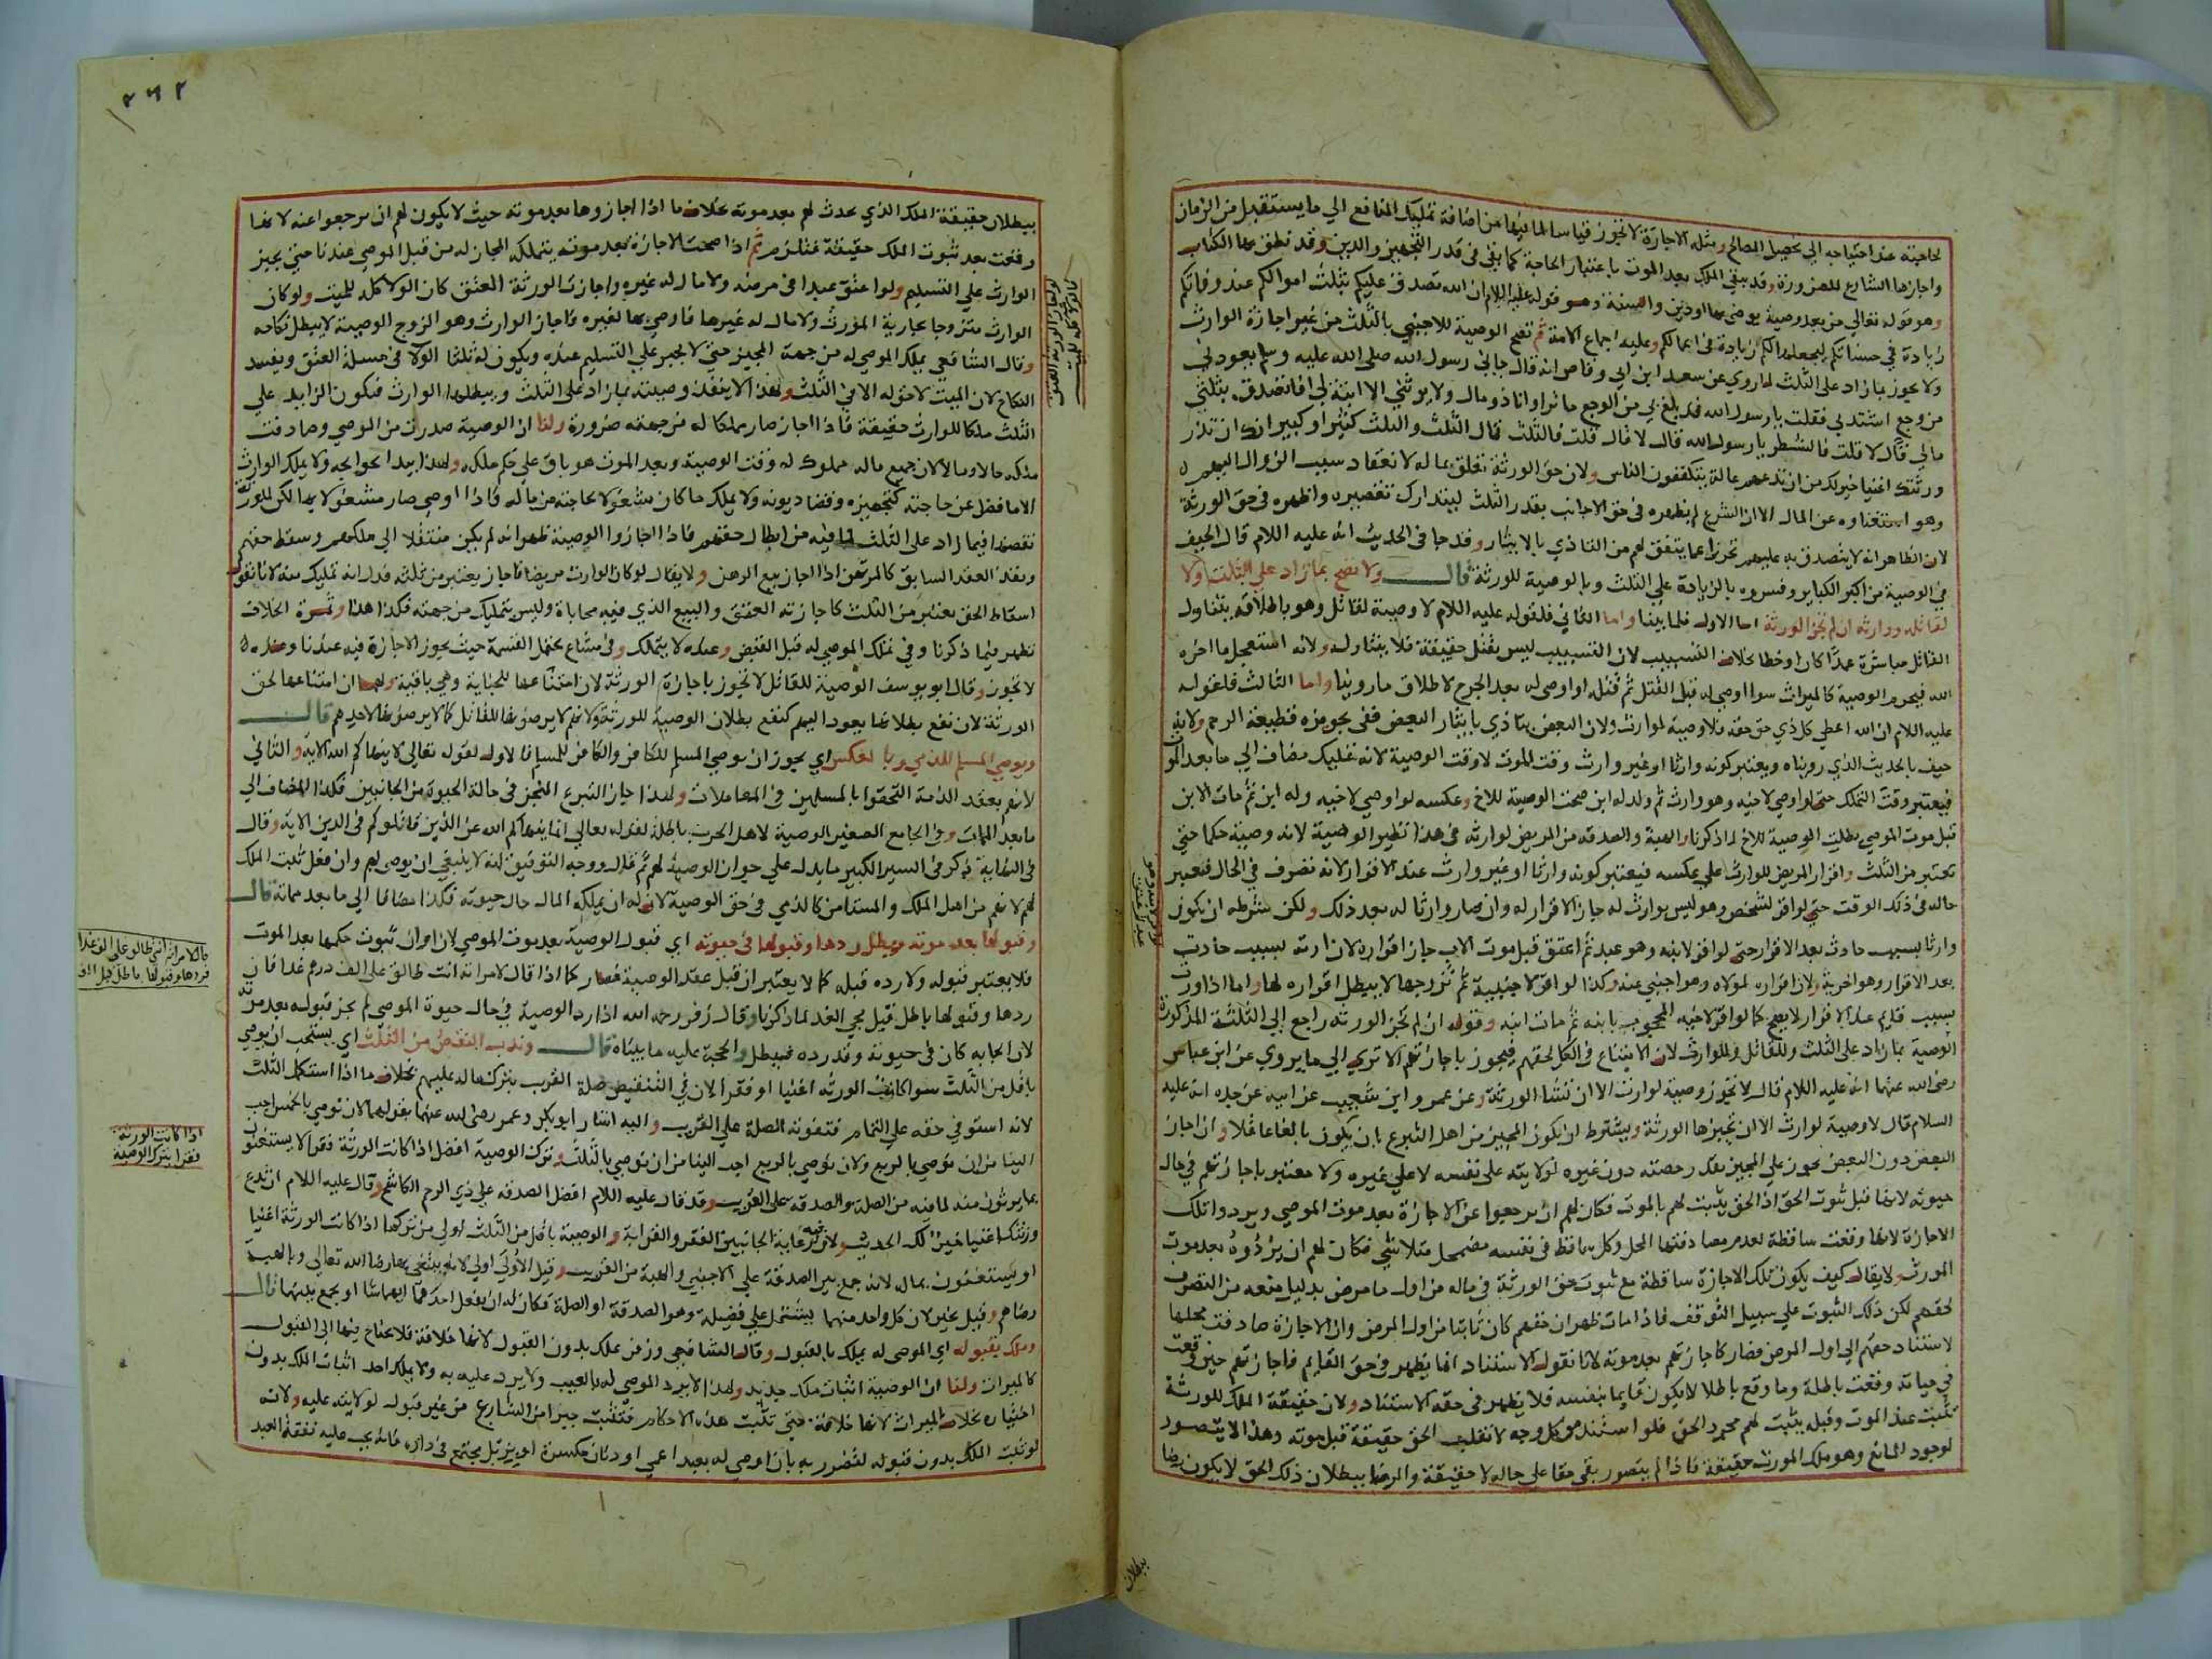 لحاجته عند احتياجه الى تحصيل المصالح ومثله الاجارة لا تجوز قياسا لما فيها من اضافة تمليك المنافع الي ما يستقبل من الزمان
واجازها الشارع للضرورة وقد يبقي الملك بعد الموت باعتبار الحاجة كما بقي في قدر التجهيز والدين وقد نطق بها الكتاب
وهو قوله تعالي من بعد وصية يوصى بها او دين والسنة وهو قوله عليه اللام ان الله تصدق عليكم بثلث اموالكم عند وفاتكم
زيادة في حسناتكم ليجعلها لكم زيادة في اعمالكم وعليه اجماع الامة ثم تصح الوصية للاجنبي بالثلث من غير اجازة الوارث
ولا يجوز بما زاد على الثلث لما روي عن سعد ابن ابي وقاص انه قال جاني رسول الله صلى الله عليه وسلم يعودني
من وجع اشتد بي فقلت يا رسول الله قد بلغ بي من الوجع ما ترا وانا ذو مال ولا يرثني الا ابنة لي افاتصدق بثلثي
مالي قال لا قلت فالشطر يا رسول الله قال لا قال قلت فالثلث قال الثلث والثلث كثير او كبير انك ان تذر
ورثتك اغنيا خير لك من ان تدعهم عالة يتكففون الناس ولان حق الورثة تعلق بماله لانعقاد سبب الزوال اليهم
وهو استغناوه عن المال الا ان الشرع لم يظهره في حق الاجانب بقدر الثلث ليتدارك تقصيره واظهره في حق الورثة
لان الظاهر انه لا يتصدق به عليهم تحرزا عما يتفق لهم من التاذي بالايثار وقد جا في الحديث انه عليه اللام قال الحيف
في الوصية من اكبر الكباير وفسروه بالزيادة علي الثلث وبالوصية للورثة قال ولا تصح بما زاد علي الثلث ولا
لقاتله ووارثه ان لم تجز الورثة اما الاول فلما بينا واما الثاني فلقوله عليه اللام لا وصية لقاتل وهو باطلاقه يتناول
القاتل مباشرة عمدا كان او خطا بخلاف التسبيب لان التسبيب ليس بقتل حقيقة فلا يتناوله ولانه استعجل ما اخره
الله فيحرم الوصية كالميراث سوا اوصي له قبل القتل ثم قتله او اوصى له بعد الجرح لاطلاق ما روينا واما الثالث فلقوله
عليه اللام ان الله اعطي كل ذي حق حقه فلا وصية لوارث ولان البعض يتاذي بايثار البعض ففي تجويزه قطيعة الرحم ولانه
حيف بالحديث الذي رويناه ويعتبر كونه وارثا او غير وارث وقت الموت لا وقت الوصية لانه تمليك مضاف الي ما بعد الموت
فيعتبر وقت التملك حتى لو اوصي لاخيه وهو وارث ثم ولد له ابن صحت الوصية للاخ وعكسه لو اوصي لاخيه وله ابن ثم مات الابن
قبل موت الموصي بطلت الوصية للاخ لما ذكرنا والهبة والصدقة من المريض لوارثه في هذا نظير الوصية لانه وصية حكما حتي
تعتبر من الثلث واقرار المريض للوارث علي عكسه فيعتبر كونه وارثا او غير وارث عند الاقرار لانه تصرف في الحال فيعتبر
حاله في ذلك الوقت حتي لو اقر لشخص وهو ليس بوارث له جاز الاقرار له وان صار وارثا له بعد ذلك ولكن شرطه ان يكون
وارثا بسبب حادث بعد الاقرار حتي لو اقر لابنه وهو عبد ثم اعتق قبل موت الاب جاز اقراره لان ارثه بسبب حادث
بعد الاقرار وهو الحرية ولان اقراره لمولاه وهو اجنبي عنه وكذا لو اقر لاجنبية ثم تزوجها لا يبطل اقراره لها واما اذا ورث
بسبب قايم عند الاقرار لا يصح كما لو اقر لاخيه المحجوب بابنه ثم مات ابنه وقوله ان لم تجز الورثه راجع الى الثلثة المذكورة
الوصية بما زاد على الثلث وللقاتل وللوارث لان الامتناع في الكل لحقهم فيجوز باجازتهم الا تري الي ما يروي عن ابن عباس
رضى الله عنهما انه عليه اللام قال لا تجوز وصية لوارث الا ان تشا الورثة وعن عمرو ابن شعيب عن ابيه عن جده انه عليه
السلام قال لا وصية لوارث الا ان تجيزها الورثة ويشترط ان يكون المجيز من اهل التبرع بان يكون بالغا عاقلا وان اجاز
البعض دون البعض يجوز علي المجيز بقدر حصته دون غيره لولايته على نفسه لا علي غيره ولا معتبر باجازتهم في حال
حيوته لانها قبل ثبوت الحق اذ الحق يثبت لهم بالموت فكان لهم ان يرجعوا عن الاجازة بعد موت الموصي ويردوا تلك
الاجازة لانها وقعت ساقطة لعدم مصادفتها المحل وكل ساقط في نفسه مضمحل متلاشي فكان لهم ان يردوه بعد موت
المورث ولا يقال كيف يكون تلك الاجازة ساقطة مع ثبوت حق الورثة في ماله من اول ما مرض بدليل منعه من التصرف
لحقهم لكن ذلك الثبوت علي سبيل التوقف فاذا مات ظهر ان حقهم كان ثابتا من اول المرض وان الاجازة صادفت محلها
لاستناد حقهم الي اول المرض فصار كاجازتهم بعد موته لانا نقول الاستناد انما يظهر في حق القايم فاجازتهم حين وقعت
في حياته وقعت باطلة وما وقع باطلا لا يكون قايما بنفسه فلا يظهر في حقه الاستناد ولان حقيقة الملك للورثة
تثبت عند الموت وقبله يثبت لهم مجرد الحق فلو استند من كل وجه لانقلب الحق حقيقة قبل موته وهذا لا يتصور
لوجود المانع وهو ملك المورث حقيقة فاذا لم يتصور بقي حقا علي حاله لا حقيقة والرضا ببطلان ذلك الحق لا يكون رضا
ببطلان
٣٦٢
ببطلان حقيقة الملك الذي يحدث لهم بعد موته بخلاف ما اذا اجازوها بعد موته حيث لا يكون لهم ان يرجعوا عنه لانها
وقعت بعد ثبوت الملك حقيقة فتلزم ثم اذا صحت الاجازة بعد موته يتملكه المجاز له من قبل الموصي عندنا حتي يجبر
الوارث علي التسليم ولو اعتق عبدا في مرضه ولا مال له غيره واجازت الورثة العتق كان الولا كله للميت ولو كان
الوارث متزوجا بجارية المورث ولا مال له غيرها فاوصي بها لغيره فاجاز الوارث وهو الزوج الوصية لا يبطل نكاحه
وقال الشافعي يملك الموصي له من جهة المجيز حتي لا يجبر علي التسليم عنده ويكون له ثلثا الولا في مسيلة العتق ويفسد
النكاح لان الميت لا حق له الا في الثلث ولهذا لا ينفذ وصيته بما زاد على الثلث ويبطلها الوارث فيكون الزايد علي
الثلث ملكا للوارث حقيقة فاذا اجاز صار مملكا له من جهته ضرورة ولنا ان الوصية صدرت من الموصي وصادفت
ملكه حالا ومالا لان جميع ماله مملوك له وقت الوصية وبعد الموت هو باق علي حكم ملكه ولهذا يبدا بحوايجه ولا يملك الوارث
الا ما فضل عن حاجته كتجهيزه وقضا ديونه ولا يملك ما كان مشغولا بحاجته من ماله فاذا اوصى صار مشغولا بها لكن للورثة
نقضها فيما زاد علي الثلث لما فيه من ابطال حقهم فاذا اجازوا الوصية ظهر انه لم يكن منتقلا الي ملكهم وسقط حقهم
ونفذ العقد السابق كالمرتهن اذا اجاز بيع الرهن ولا يقال لو كان الوارث مريضا فاجاز يعتبر من ثلثه فدل انه تمليك منه لانا نقول
اسقاط الحق يعتبر من الثلث كاجازته العتق والبيع الذي فيه محاباة وليس بتمليك من جهته فكذا هذا وثمرة الخلاف
تظهر فيما ذكرنا وفي تملك الموصي له قبل القبض وعنده لا يتملك وفي مشاع يحتمل القسمة حيث يجوز الاجازة فيه عندنا وعنده
لا تجوز وقال ابو يوسف الوصية للقاتل لا تجوز باجازة الورثة لان امتناعها للجناية وهي باقية ولهما ان امتناعها لحق
الورثة لان نفع بطلانها يعود اليهم كنفع بطلان الوصية للورثة ولانهم لا يرضونها للقاتل كما لا يرضونها لاحدهم قال
ويوصي المسلم للذمي وبالعكس اي يجوز ان يوصي المسلم للكافر والكافر للمسلم فالاول لقوله تعالي لا ينهاكم الله الاية والثاني
لانهم بعقد الذمة التحقوا بالمسلمين في المعاملات ولهذا جاز التبرع المنجز في حالة الحيوة من الجانبين فكذا المضاف الي
ما بعد الممات وفي الجامع الصغير الوصية لاهل الحرب باطلة لقوله تعالي انما ينهاكم الله عن الذين قاتلوكم في الدين الاية وقال
في النهاية ذكر في السير الكبير ما يدل علي جواز الوصية لهم ثم قال ووجه التوفيق انه لا ينبغي ان يوصي لهم وان فعل ثبت الملك
لهم لانهم من اهل الملك والمستامن كالذمي في حق الوصية لانه له ان يملكه المال حال حيوته فكذا مضافا الي ما بعد مماته قال
وقبولها بعد موته وبطل ردها وقبولها في حيوته اي قبول الوصية بعد موت الموصي لان اوان ثبوت حكمها بعد الموت
فلا يعتبر قبوله ولا رده قبله كما لا يعتبران قبل عقد الوصية فصار كما اذا قال لامراته انت طالق على الف درهم غدا فان
ردها وقبولها باطل قبل مجي الغد لما ذكرنا وقال زفر رحمه الله اذا رد الوصية في حال حيوة الموصي لم يجز قبوله بعد موته
لان ايجابه كان في حيوته وقد رده فيبطل والحجة عليه ما بيناه قال وندب النقص من الثلث اي يستحب ان يوصي
باقل من الثلث سوا كانت الورثه اغنيا او فقرا لان في التنقيص صلة القريب بتركه ماله عليهم بخلاف ما اذا استكمل الثلث
لانه استوفي حقه علي التمام فتفوته الصلة علي القريب واليه اشار ابو بكر وعمر رضى الله عنهما بقولهما لان نوصي بالخمس احب
الينا من ان نوصي بالربع ولان نوصي بالربع احب الينا من ان نوصي بالثلث وترك الوصية افضل اذا كانت الورثة فقرا لا يستغنون
بما يرثون منه لما فيه من الصلة والصدقة علي القريب وقد قال عليه اللام افضل الصدقة علي ذي الرحم الكاشح وقال عليه اللام ان تدع
ورثتك اغنيا خير لك الحديث ولان فيه رعاية الجانبين الفقر والقرابة والوصية باقل من الثلث اولي من تركها اذا كانت الورثة اغنيا
او يستغنون بمال لانه جمع بين الصدقة علي الاجنبي والهبة من القريب وقيل الاول اولي لانه يبتغي بها رضا الله تعالي وبالهبة
رضاهم وقيل يخير لان كل واحد منهما يشتمل علي فضيلة وهو الصدقة او الصلة فكان له ان يفعل احدهما ايهما شا او يجمع بينهما قال
وملك بقبوله اي الموصى له يملك بالقبول وقال الشافعي وزفر يملك بدون القبول لانها خلافة فلا يحتاج فيها الى القبول
كالميراث ولنا ان الوصية اثبات ملك جديد ولهذا لا يرد الموصى له بالعيب ولا يرد عليه به ولا يملك احد اثبات الملك بدون
اختياره بخلاف الميراث لانها خلافة حتي تثبت هذه الاحكام فتثبت جبرا من الشارع من غير قبول لولايته عليه ولانه
لو ثبت الملك بدون قبوله لتضرر به بان اوصي له بعبد اعمي او دنان مكسرة او بزبل مجتمع في داره فانه يجب عليه نفقة العبد
اذا كانت الورثة
فقرا يترك الوصية